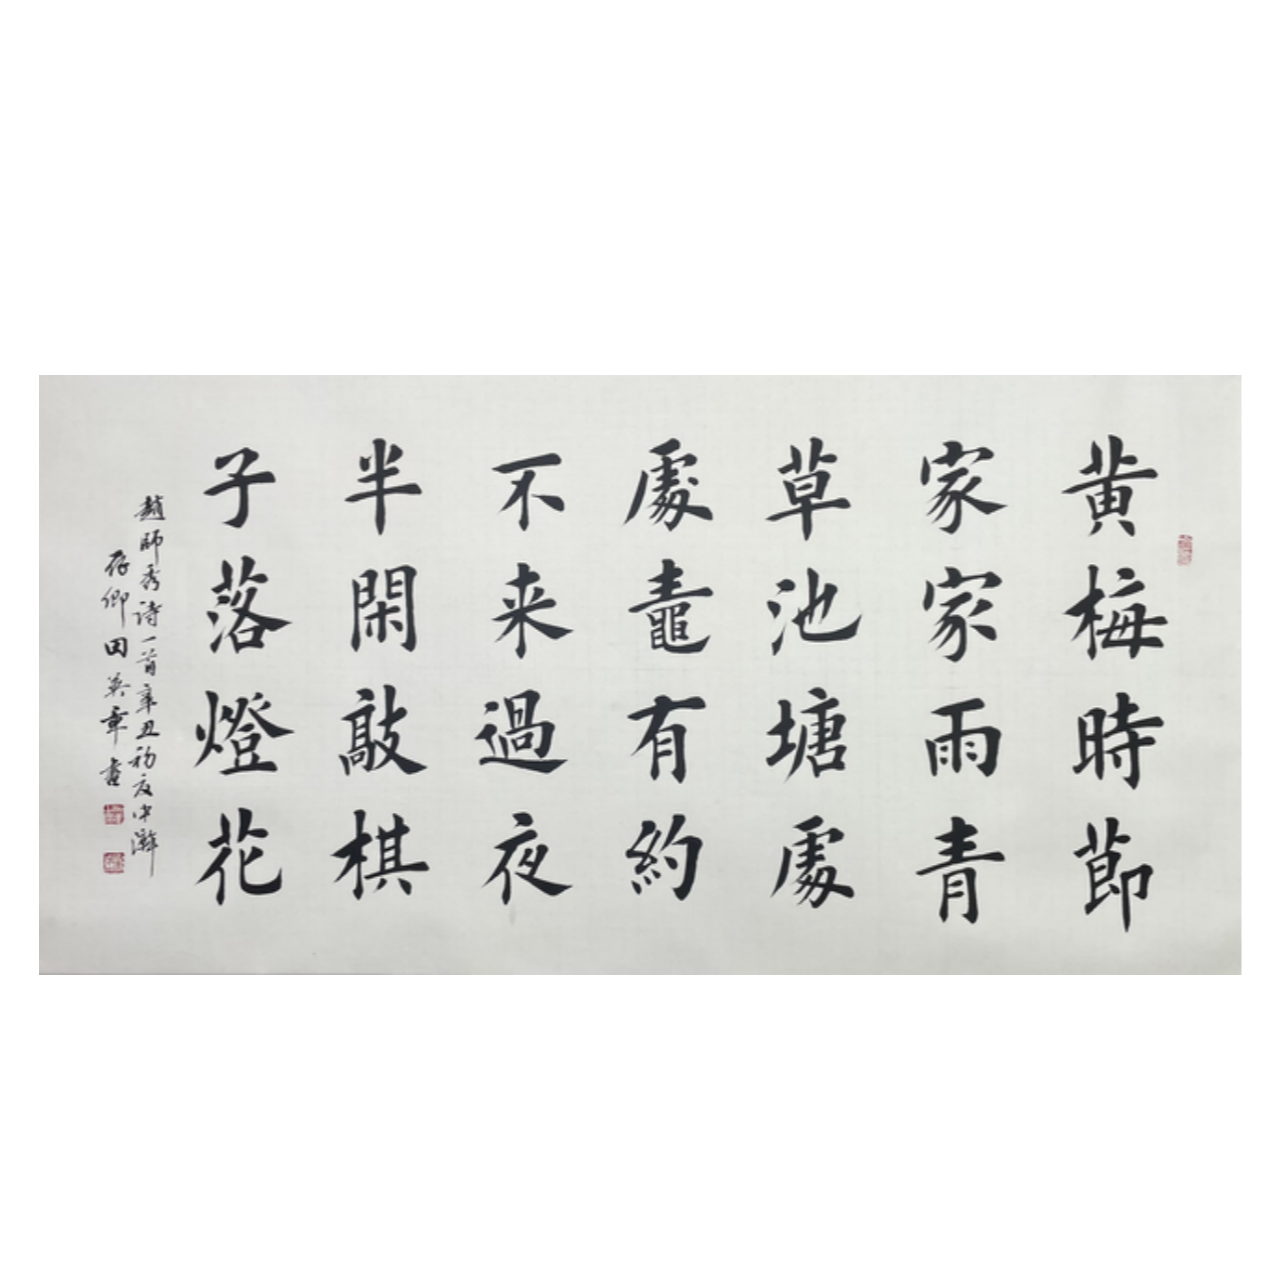 黄梅時節
家家雨青
草池塘處
處鼃有約
不来過夜
半閑敲棋
子落燈花
趙師秀诗一首辛丑初夏中澣
存卿田英章書